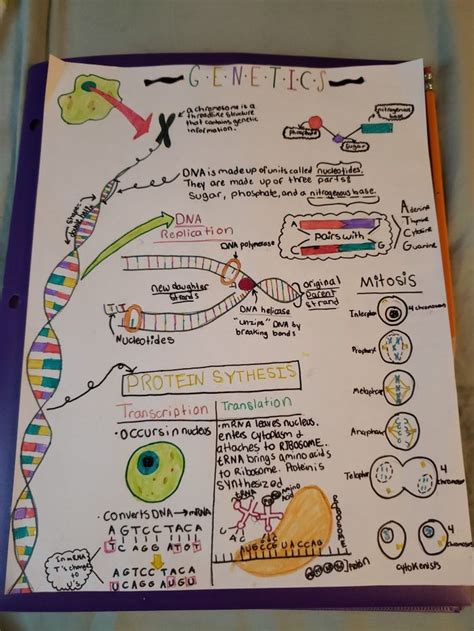 GENETICS
a chromosome is a
threadlike structure
that contains genetic
information.
phosphate
sugar
nitrogenous
base
DNA is made up of units called nucleotides.
They are made up of three parts
Sugar, phosphate, and a nitrogenous base.
DNA
Replication
DNA polymerase
A
T
pairs with
C
G
Adenine
Thymine
Cytosine
Guanine
new daughter
strands
original
parent
strand
DNA helicase
"unzips" DNA by
breaking bonds
Nucleotides
Mitosis
4 chromosomes
Prophase
Metaphase
Anaphase
Telophase
4
cytokenisis
PROTEIN SYTHESIS
Transcription
Translation
• OCCURS IN nucleus
• mRNA leaves nucleus,
enters cytoplasm &
attaches to RIBOSOME.
tRNA brings amino acids
to Ribosome. Protein is
synthesized
tRNA
Amino
Acid
• Converts DNA → mRNA
AGTCC TACA
TCAGG ATGT
In mRNA
T's change to
U's
AGTCC TACA
UCAGG AUGU